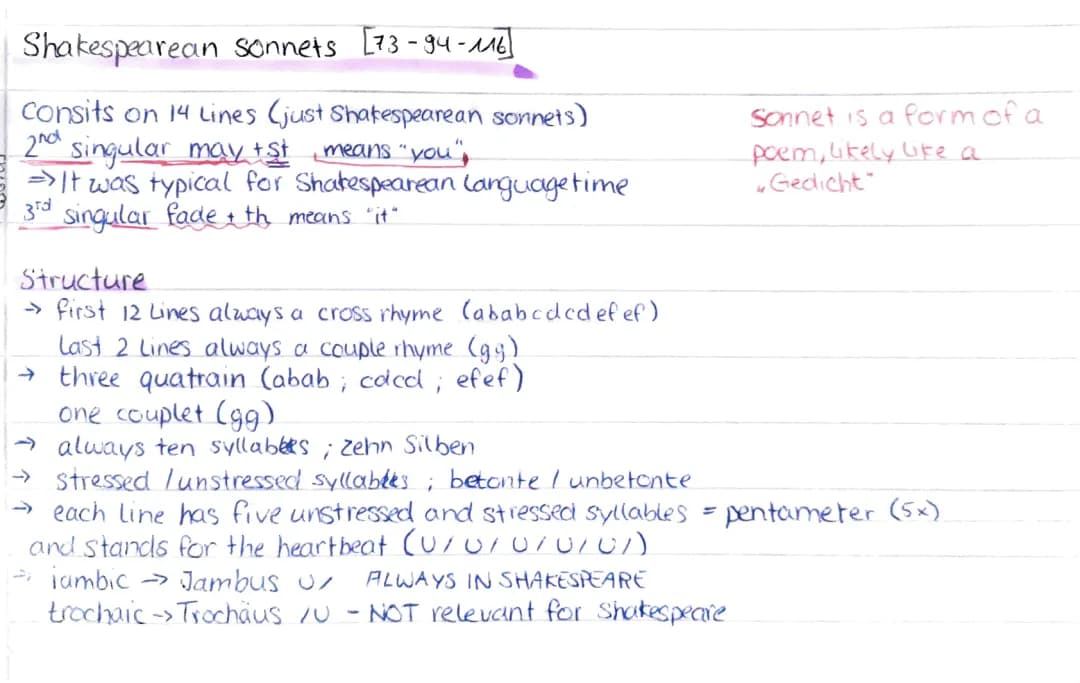 Shakespearean sonnets [73-94-116]
Consits on 14 Lines (just Shakespearean sonnets)
2nd singular may +st means "you"
=> It was typical for Shakespearean languagetime
3rd singular fade + th means "it"
Sonnet is a form of a
poem, likely like a
„Gedicht"
Structure
→ first 12 Lines always a cross rhyme (ababcdcdefef)
Last 2 Lines always a couple rhyme (gg)
→ three quatrain (abab ; cdcd ; efef)
one couplet (gg)
→ always ten syllables ; zehn Silben
→ stressed / unstressed syllables ; betonte / unbetonte
→ each line has five unstressed and stressed syllables = pentameter (5x)
and stands for the heartbeat (U/U/U/U/U/)
→ iambic → Jambus U/ ALWAYS IN SHAKESPEARE
trochaic -> Trochäus /U - NOT relevant for Shakespeare